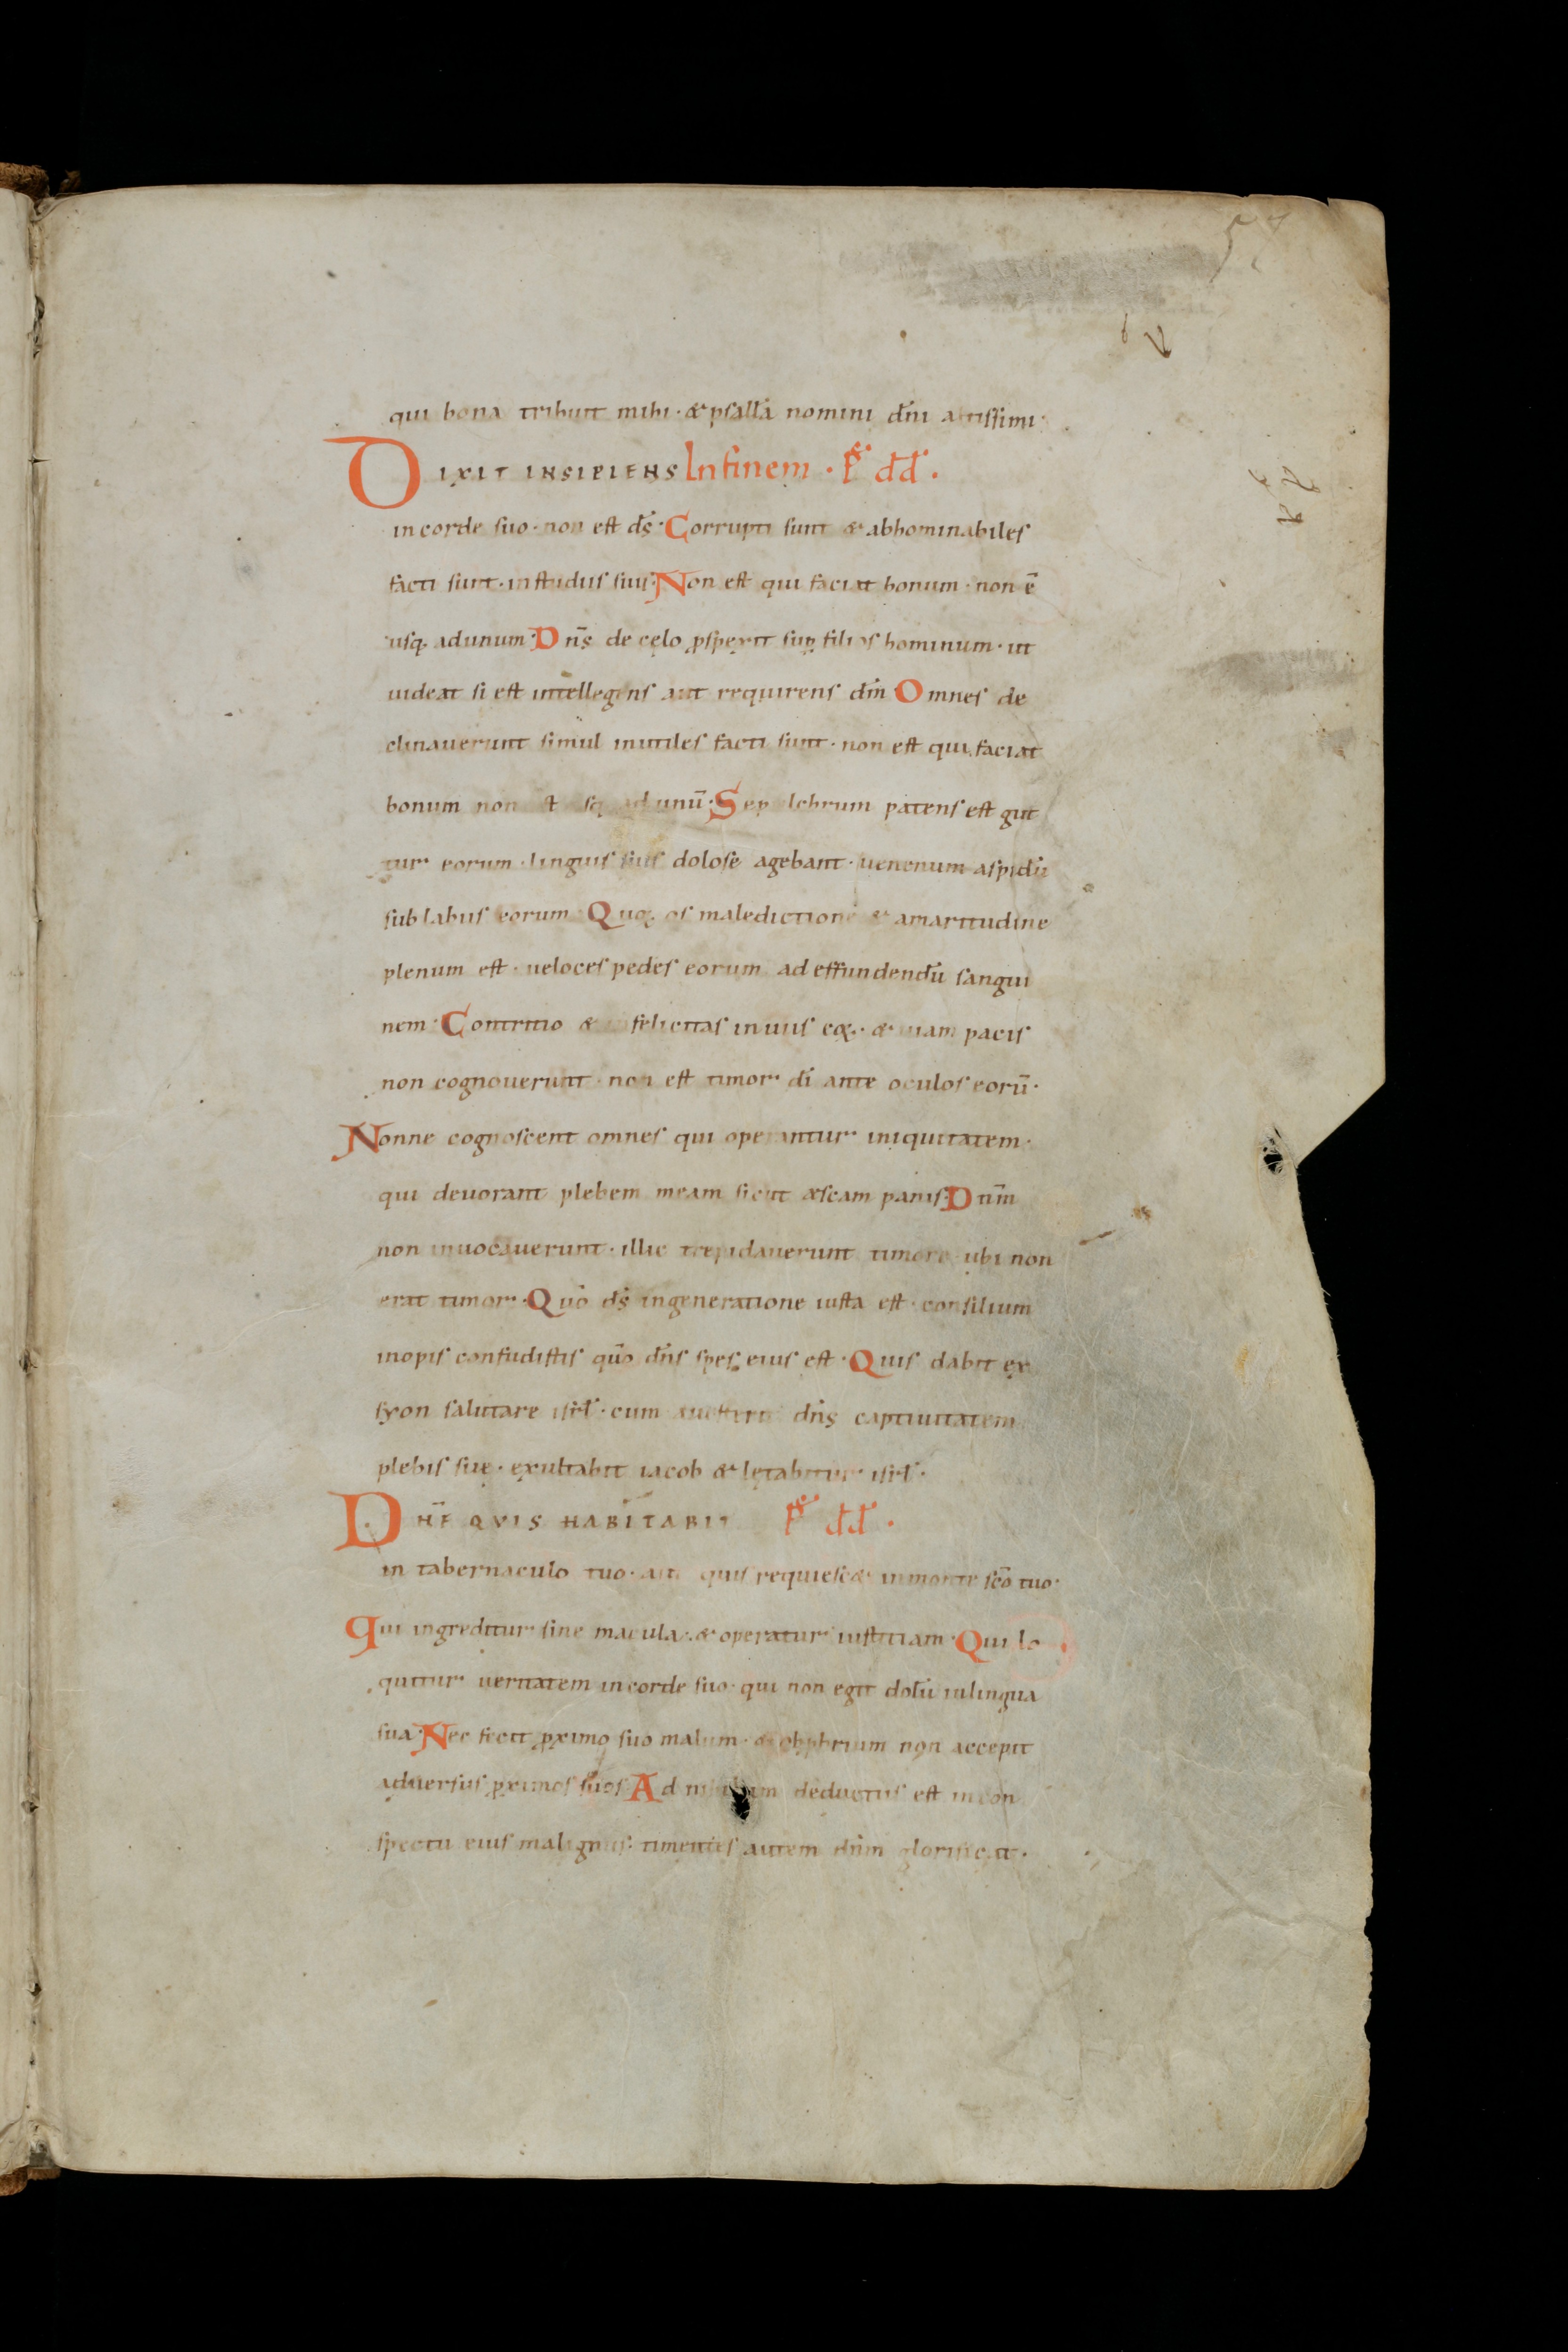 57
qui bona tribuit mihi · & psallã nomini dñi altissimi ·
DIXIT INSIPIENS In finem · ps dd ·
in corde suo · non est ds̄ · Corrupti sunt & abhominabiles
facti sunt · in studiis suis · Non est qui faciat bonum · non ē
usq; ad unum · Dns̄ de cęlo ꝓspexit sup̱ filios hominum · ut
uideat si est intellegens aut requirens dm̄ Omnes de
clinauerunt simul inutiles facti sunt · non est qui faciat
bonum non est usq; ad unū · Sepulchrum patens est gut
tur eorum · linguis suis dolose agebant · uenenum aspidū
sub labiis eorum · Quoꝝ os maledictione & amaritudine
plenum est · ueloces pedes eorum ad effundendū sangui
nem · Contritio & infelicitas in uiis eoꝝ · & uiam pacis
non cognouerunt · non est timor dī ante oculos eorū ·
Nonne cognoscent omnes qui operantur iniquitatem ·
qui deuorant plebem meam sicut æscam panis · Dnm̄
non inuocauerunt · illic trepidauerunt timore ubi non
erat timor · Quō ds̄ in generatione iusta est · consilium
inopis confudistis qūo dn̄s spes eius est · Quis dabit ex
syon salutare isrl̄ · cum auerterit dn̄s captiuitatem
plebis suę · exultabit iacob & lętabitur isrl̄ ·
DN̄E QVIS HABITABIT ps dd ·
in tabernaculo tuo · aut quis requiesc& in monte scō tuo ·
qui ingreditur sine macula · & operatur iustitiam · Qui lo
quitur ueritatem in corde suo · qui non egit dolū in lingua
sua · Nec fecit ꝓximo suo malum · & obꝓbrium non accepit
aduersus ꝓximos suos Ad nihilum deductus est in con
spectu eius malignus · timentes autem dnm̄ glorificat ·